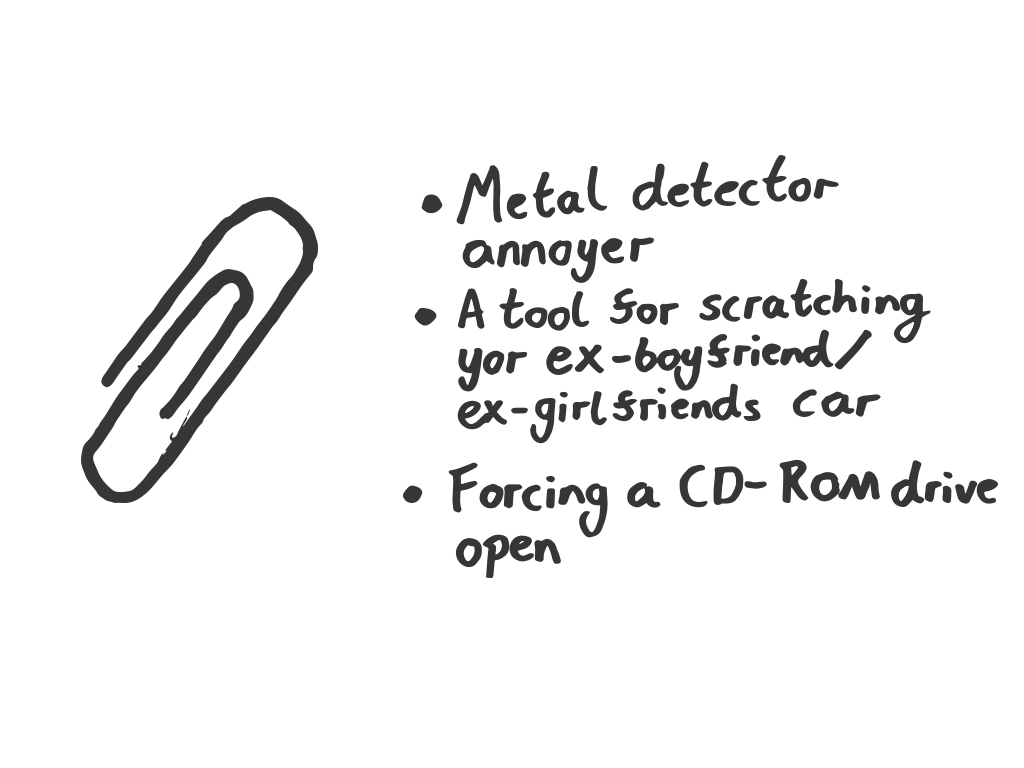 • Metal detector
annoyer
• A tool for scratching
yor ex-boyfriend/
ex-girlfriends car
• Forcing a CD-ROM drive
open